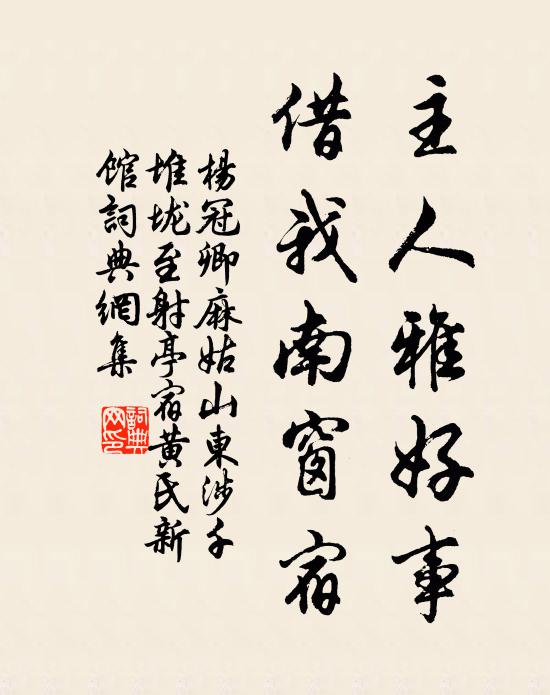 主人雅好事
借我南窗宿
楊冠卿麻姑山東涉千
堆垅至射亭宿黄氏新
馆詞典網集
詞典
网印